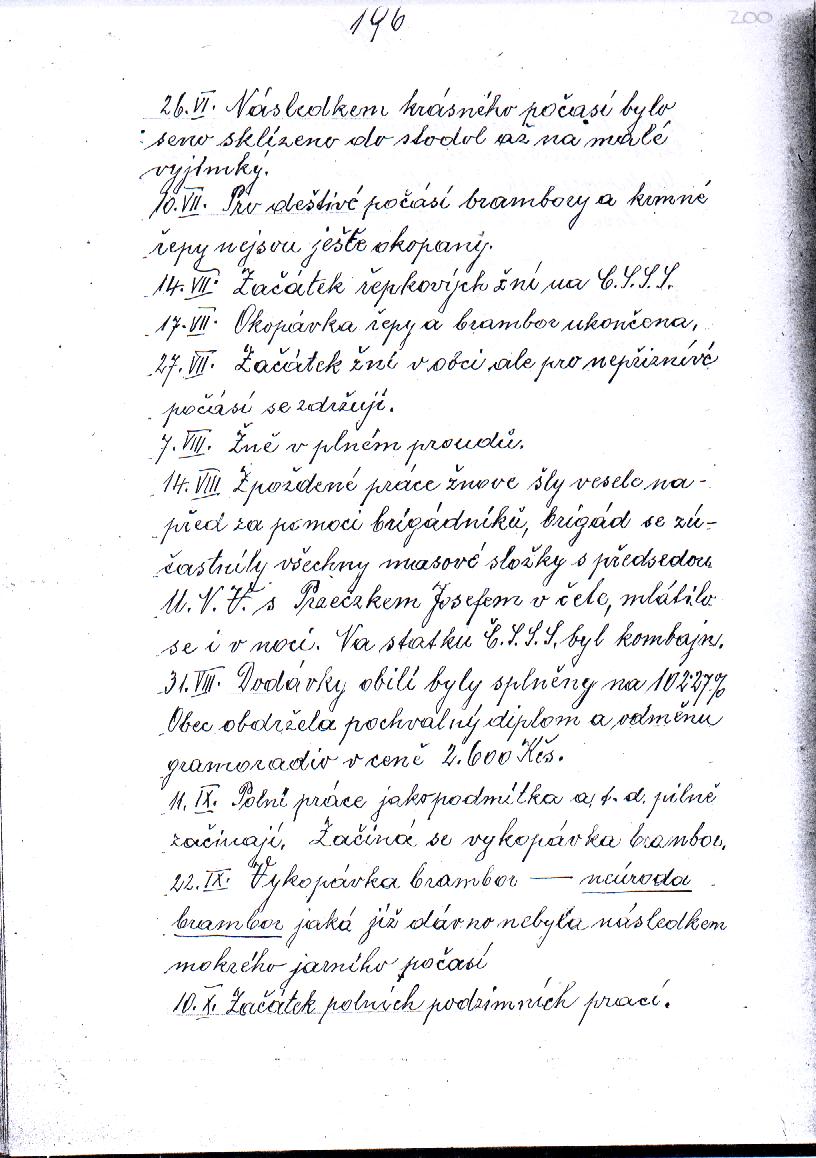 196
200
26.VI. Následkem krásného počasí bylo
seno sklízeno do stodol až na malé
vyjímky.
10.VII. Pro deštivé počásí brambory a krmné
řepy nejsou ješte okopany.
14.VII. Začátek řepkových žní na Č.S.S.S.
17.VII. Okopávka řepy a brambor ukončena.
27.VII. Začátek žní v obci ale pro nepřiznivé
počásí se zdržují.
7.VIII. Žně v plném proudů.
14.VIII Zpoždené práce žnove šly vesele na-
před za pomoci brigádníků, brigád se zú-
častnily všechny masové složky s předsedou
M.N.V. s Josefem v čele, mlátilo
se i v noci. Na statku Č.S.S.S. byl kombajn.
31.VIII. Dodávky obilí byly splněny na 102.27%
Obec obdržela pochvalný diplom a odměnu
gramoradio v ceně 2.600 Kčs.
11.IX. Polní práce jako podmítka a.t.d. pilně
začínají. Začíná se vykopávka brambor.
22.IX. Vykopávka brambor — neúroda
brambor jaká již dávno nebyla následkem
mokrého jarního počasí
10.X. Začátek polních podzimních prací.